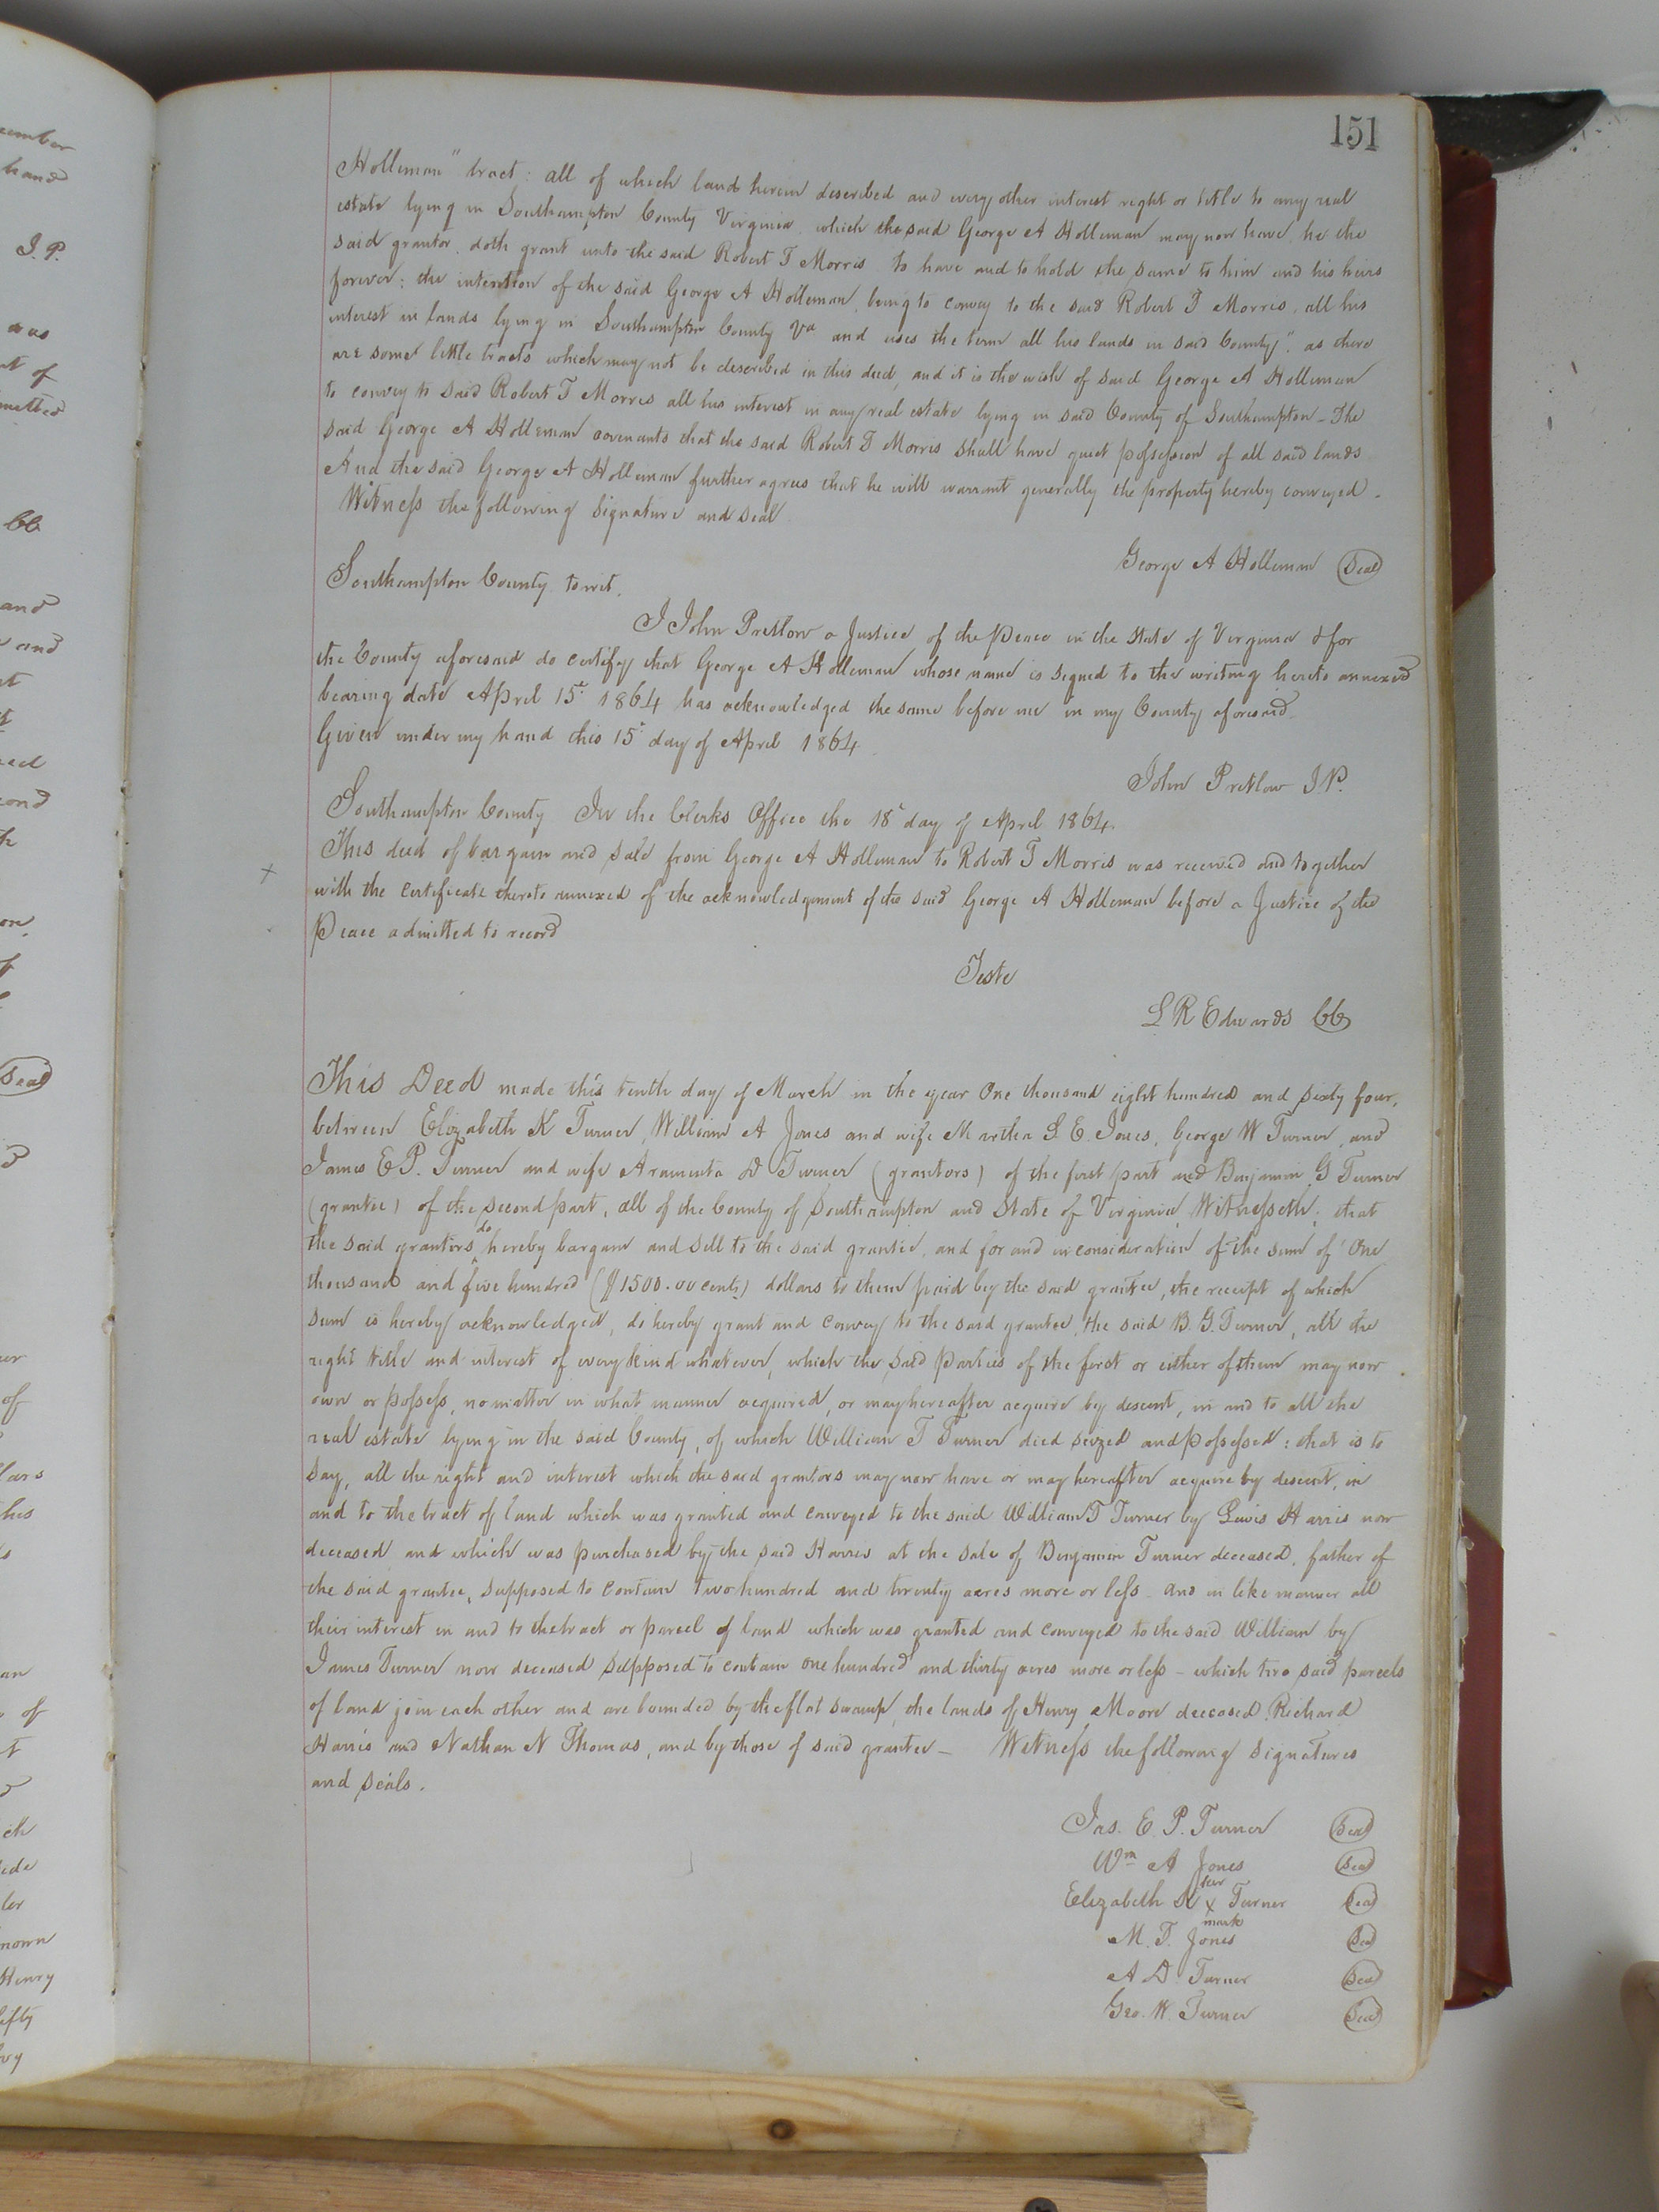 151
Holleman" tract: all of which lands herein described and every other interest right or title to any real
estate lying in Southampton County Virginia, which the said George A Holleman may now have, he the
said grantor, doth grant unto the said Robert T Morris to have and to hold the same to him and his heirs
forever: the intention of the said George A Holleman, being to convey to the said Robert T Morris, all his
interest in lands lying in Southampton County Va and uses the term all his lands in said County", as there
are some little tracts which may not be described in this deed, and it is the wish of said George A Holleman
to convey to said Robert T Morris all his interest in any real estate lying in said County of Southampton - The
said George A Holleman covenants that the said Robert T Morris shall have quiet possession of all said lands
And the said George A Holleman further agrees that he will warrant generally the property hereby conveyed -
Witness the following signature and seal
George A Holleman Seal
Southampton County to wit,
I John Pretlow a Justice of the Peace in the State of Virginia & for
the County aforesaid do certify that George A Holleman whose name is signed to the writing hereto annexed
bearing date April 15th 1864 has acknowledged the same before me in my County aforesaid
Given under my hand this 15th day of April 1864
John Pretlow J.P.
Southampton County In the Clerks Office the 18th day of April 1864
This deed of bargain and sale from George A Holleman to Robert T Morris was received and together
with the certificate thereto annexed of the acknowledgement of the said George A Holleman before a Justice of the
Peace admitted to record
Teste
L R Edwards CC
This Deed made this tenth day of March in the year One thousand eight hundred and sixty four,
between Elizabeth K Turner, William A Jones and wife Martha L. E. Jones, George W Turner, and
James E P. Turner and wife Araminta D Turner (grantors) of the first part and Benjamin G Turner
(grantee) of the second part, all of the County of Southampton and State of Virginia, Witnesseth; that
the said grantors do hereby bargain and sell to the said grantee, and for and in consideration of the sum of One
thousand and five hundred ($1500.00 cents) dollars to them paid by the said grantee, the receipt of which
sum is hereby acknowledged, do hereby grant and convey to the said grantee, the said B. G. Turner, all the
right title and interest of every kind whatever, which the said parties of the first or either of them may now
own or possess, no matter in what manner acquired, or may hereafter acquire by descent, in and to all the
real estate lying in the said County, of which William T Turner died seized and possessed: that is to
say, all the right and interest which the said grantors may now have or may hereafter acquire by descent, in
and to the tract of land which was granted and conveyed to the said William T Turner by Lewis Harris now
deceased and which was purchased by the said Harris at the sale of Benjamin Turner deceased, father of
the said grantee, supposed to contain two hundred and twenty acres more or less - and in like manner all
their interest in and to the tract or parcel of land which was granted and conveyed to the said William by
James Turner now deceased supposed to contain one hundred and thirty acres more or less - which two said parcels
of land join each other and are bounded by the flat swamp, the lands of Henry Moore deceased, Richard
Harris and Nathan N Thomas, and by those of said grantee - Witness the following signatures
and seals.
Jas. E. P. Turner Seal
Wm A Jones Seal
her
Elizabeth K x Turner Seal
mark
M. T. Jones Seal
A D Turner Seal
Geo. W. Turner Seal